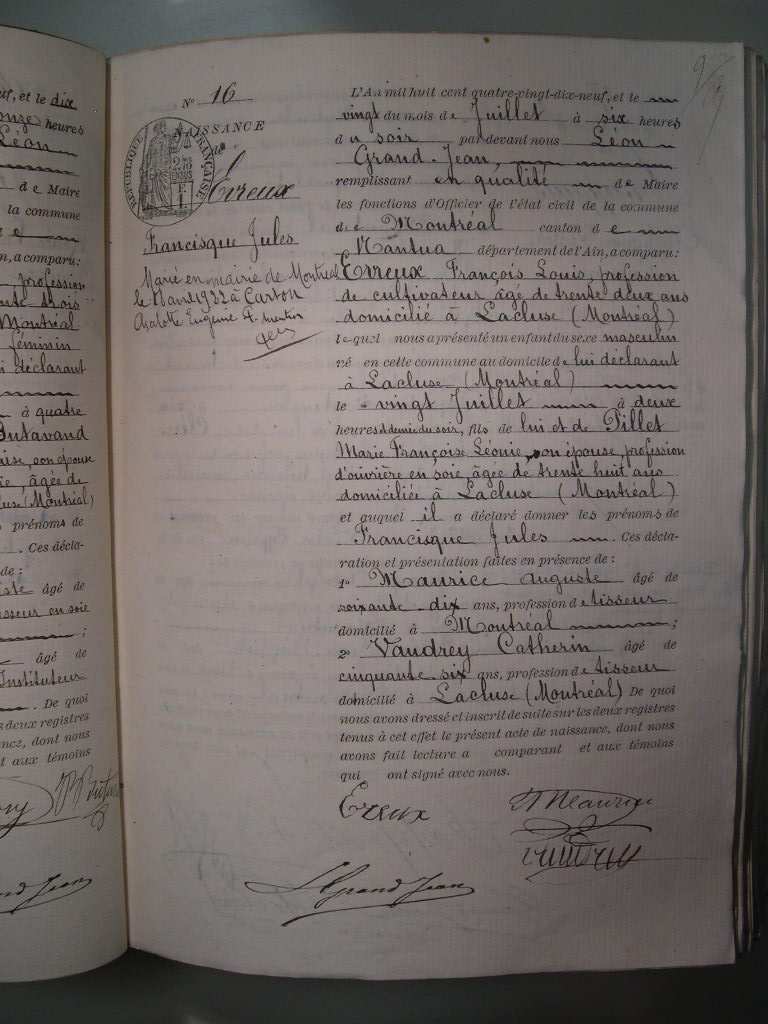 euf, et le dix
onze heures
Léon
de Maire
la commune
e
n, a comparu:
profession
ente trois
Montréal
féminin
i déclarant
à quatre
Butavand
aise, son épouse
ie, âgée de
use (Montréal)
s prénoms de
. Ces décla-
de :
iste âgé de
isseur en soie
;
âgé de
Instituteur
. De quoi
es deux registres
ance, dont nous
t aux témoins
and Jean
N° 16
NAISSANCE
de
RÉPUBLIQUE FRANÇAISE
Ereux
Francisque Jules
Marié en mairie de Montréal
le
1922 à Carton
Eugénie
L'An mil huit cent quatre-vingt-dix-neuf, et le
vingt du mois de Juillet à six heures
du soir par devant nous Léon
Grand-Jean,
remplissant en qualité de Maire
les fonctions d'Officier de l'état civil de la commune
de Montréal canton de
Nantua département de l'Ain, a comparu:
Ereux François Louis, profession
de cultivateur, âgé de trente deux ans
domicilié à Lacluse (Montréal)
lequel nous a présenté un enfant du sexe masculin
né en cette commune au domicile de lui déclarant
à Lacluse, (Montréal)
le vingt Juillet à deux
heures et demie du soir, fils de lui et de Pillet
Marie Françoise Léonie, son épouse, profession
d'ouvrière en soie, âgée de trente huit ans
domiciliée à Lacluse (Montréal)
et auquel il a déclaré donner les prénoms de
Francisque Jules . Ces décla-
ration et présentation faites en présence de :
1° Maurice Auguste âgé de
soixante-dix ans, profession de tisseur
domicilié à Montréal ;
2° Vaudrey Catherin âgé de
cinquante six ans, profession de tisseur
domicilié à Lacluse (Montréal) De quoi
nous avons dressé et inscrit de suite sur les deux registres
tenus à cet effet le présent acte de naissance, dont nous
avons fait lecture a comparant et aux témoins
qui ont signé avec nous.
Ereux
Maurice
L Grand Jean